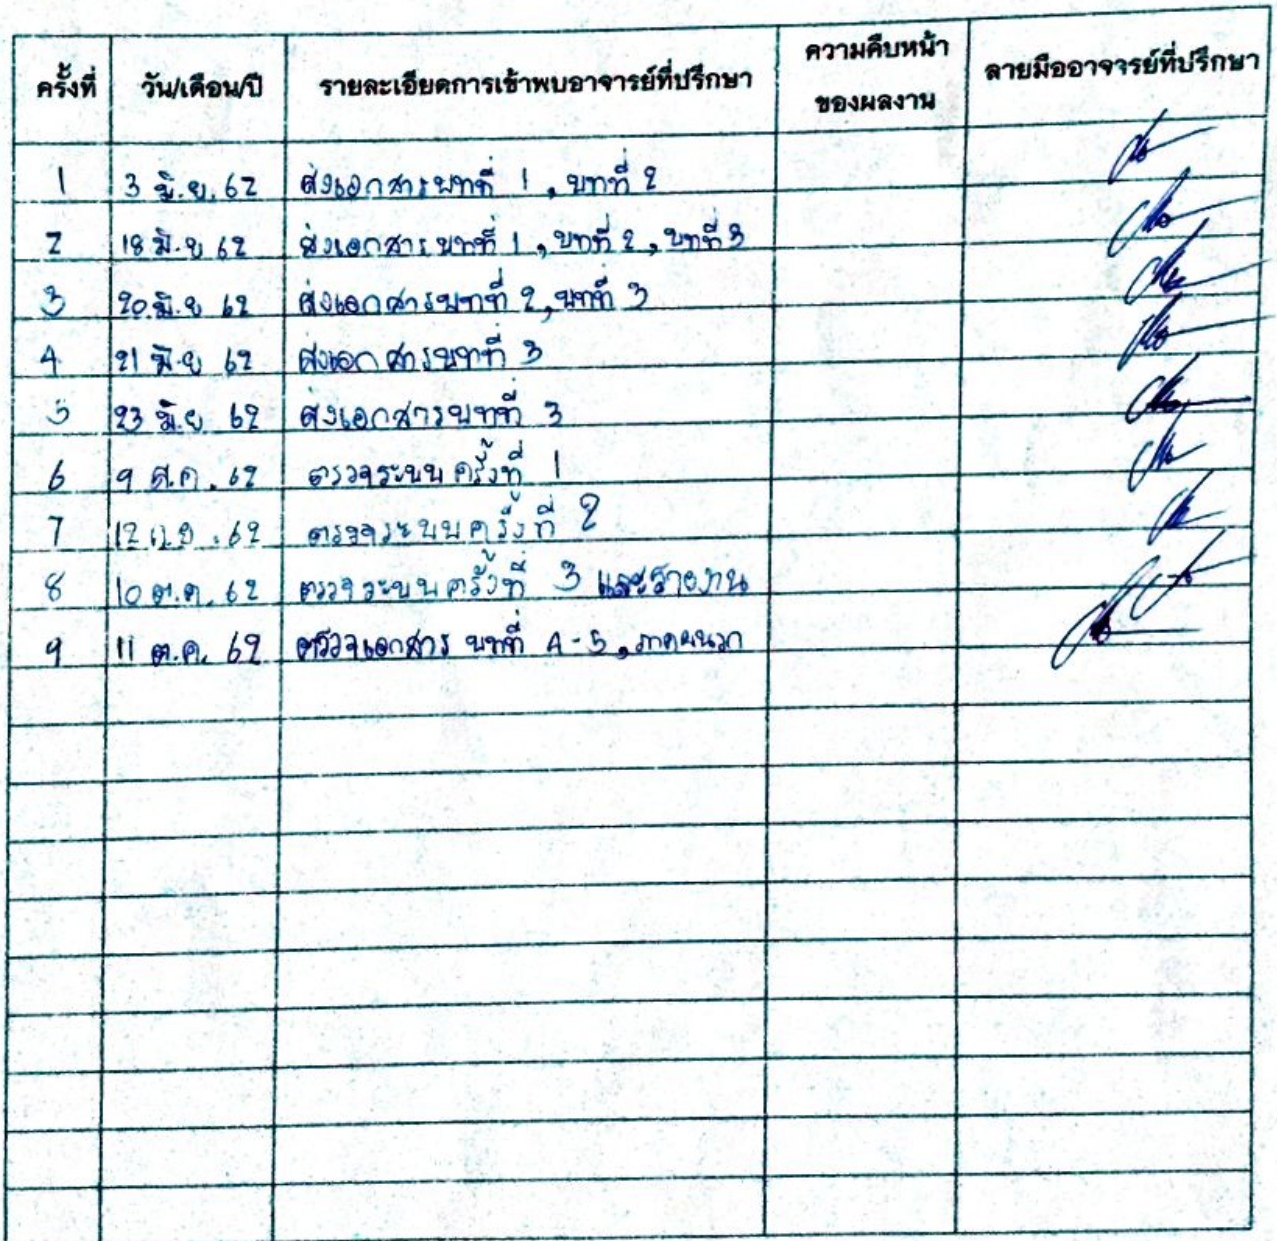 ครั้งที่ วัน/เดือน/ปี รายละเอียดการเข้าพบอาจารย์ที่ปรึกษา ความคืบหน้าของผลงาน ลายมืออาจารย์ที่ปรึกษา
1 3 มิ.ย. 62 ส่งเอกสารบทที่ 1, บทที่ 2
2 18 มิ.ย 62 ส่งเอกสารบทที่ 1, บทที่ 2, บทที่ 3
3 20 มิ.ย 62 ส่งเอกสารบทที่ 2, บทที่ 3
4 21 มิ.ย 62 ส่งเอกสารบทที่ 3
5 23 มิ.ย 62 ส่งเอกสารบทที่ 3
6 9 ส.ค. 62 ตรวจระบบครั้งที่ 1
7 12 ก.ย. 62 ตรวจระบบครั้งที่ 2
8 10 ต.ค. 62 ตรวจระบบครั้งที่ 3 และรายงาน
9 11 ต.ค. 62 ตรวจเอกสาร บทที่ 4-5, ภาคผนวก